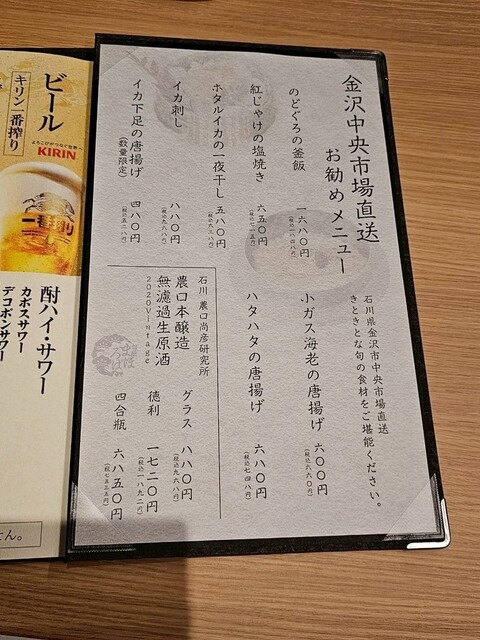 金沢中央市場直送
お勧めメニュー
石川県金沢市中央市場直送
きときとな旬の食材をご堪能ください。
のどぐろの釜飯 一六八〇円
(税込一八四八円)
紅じゃけの塩焼き 六五〇円
(税込七一五円)
ホタルイカの一夜干し 五八〇円
(税込六三八円)
イカ刺し 八八〇円
(税込九六八円)
イカ下足の唐揚げ 四八〇円
(数量限定) (税込五二八円)
小ガス海老の唐揚げ 六〇〇円
(税込六六〇円)
ハタハタの唐揚げ 六八〇円
(税込七四八円)
石川 農口尚彦研究所
農口本醸造
無濾過生原酒
2020Vintage
グラス 八八〇円
(税込九六八円)
徳利 一七二〇円
(税込一八九二円)
四合瓶 六八五〇円
(税込七五三五円)
ビール
キリン一番搾り
よろこびがつなぐ世界へ
KIRIN
一番搾り
酎ハイ・サワー
カボスサワー
デコポンサワー
ん。